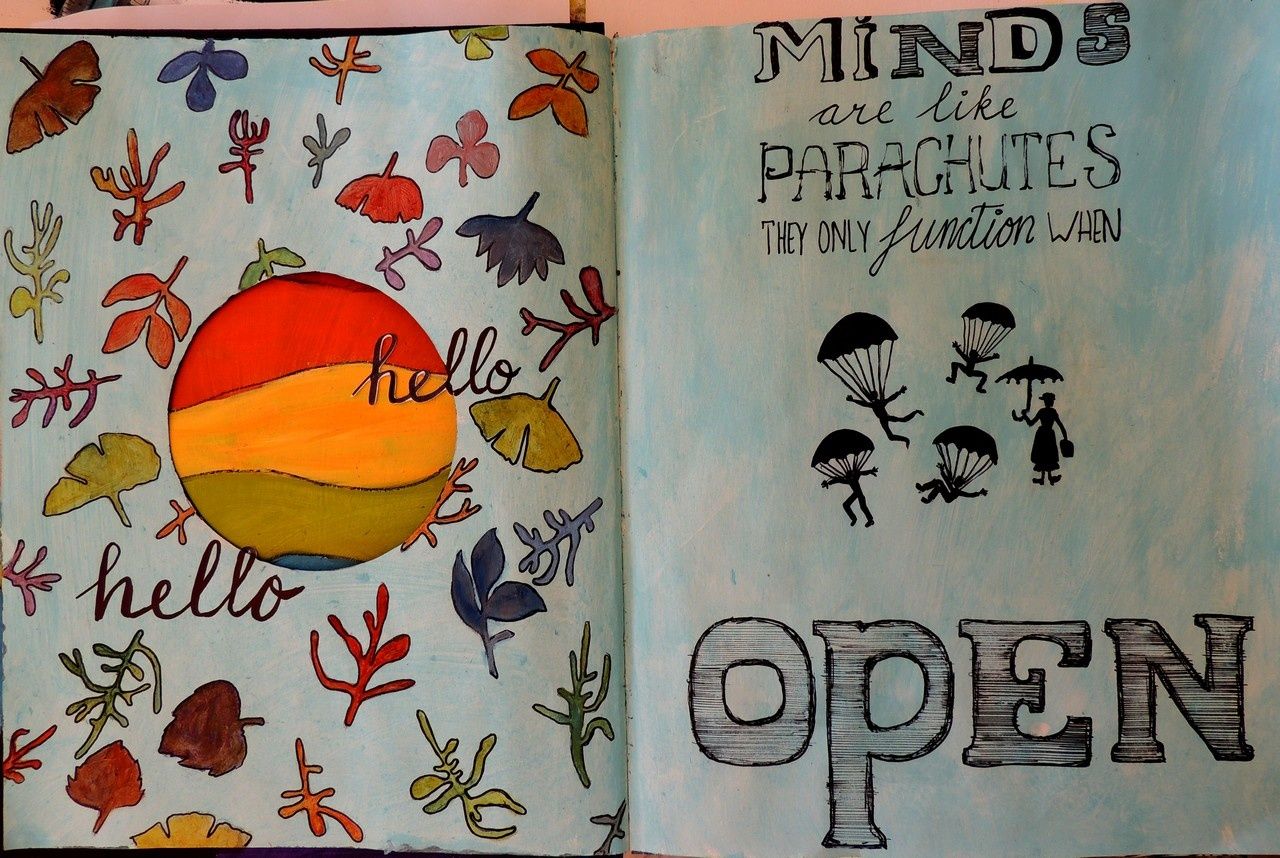 hello
hello
MiNDS
are like
PARACHUTES
THEY ONLY function WHEN
OPEN